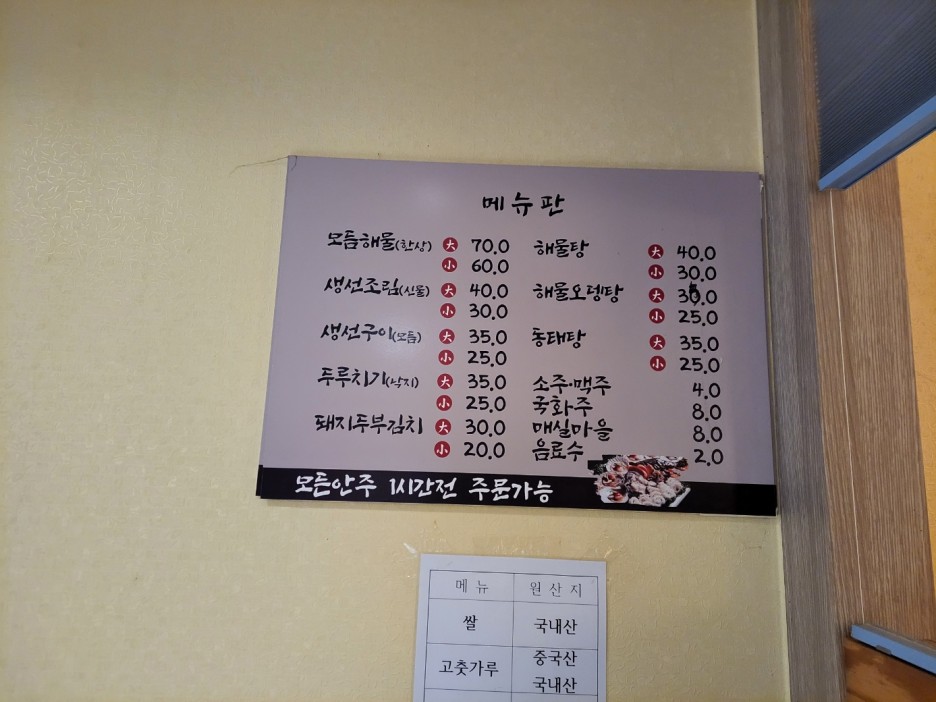 메뉴판
모듬해물(한상) 大 70.0
小 60.0
생선조림(신물) 大 40.0
小 30.0
생선구이(모듬) 大 35.0
小 25.0
두루치기(낙지) 大 35.0
小 25.0
돼지두부김치 大 30.0
小 20.0
해물탕 大 40.0
小 30.0
해물오뎅탕 大
小 25.0
동태탕 大 35.0
小 25.0
소주·맥주 4.0
국화주 8.0
매실마을 8.0
음료수 2.0
모든안주 1시간전 주문가능
메뉴 원산지
쌀 국내산
고춧가루 중국산
국내산